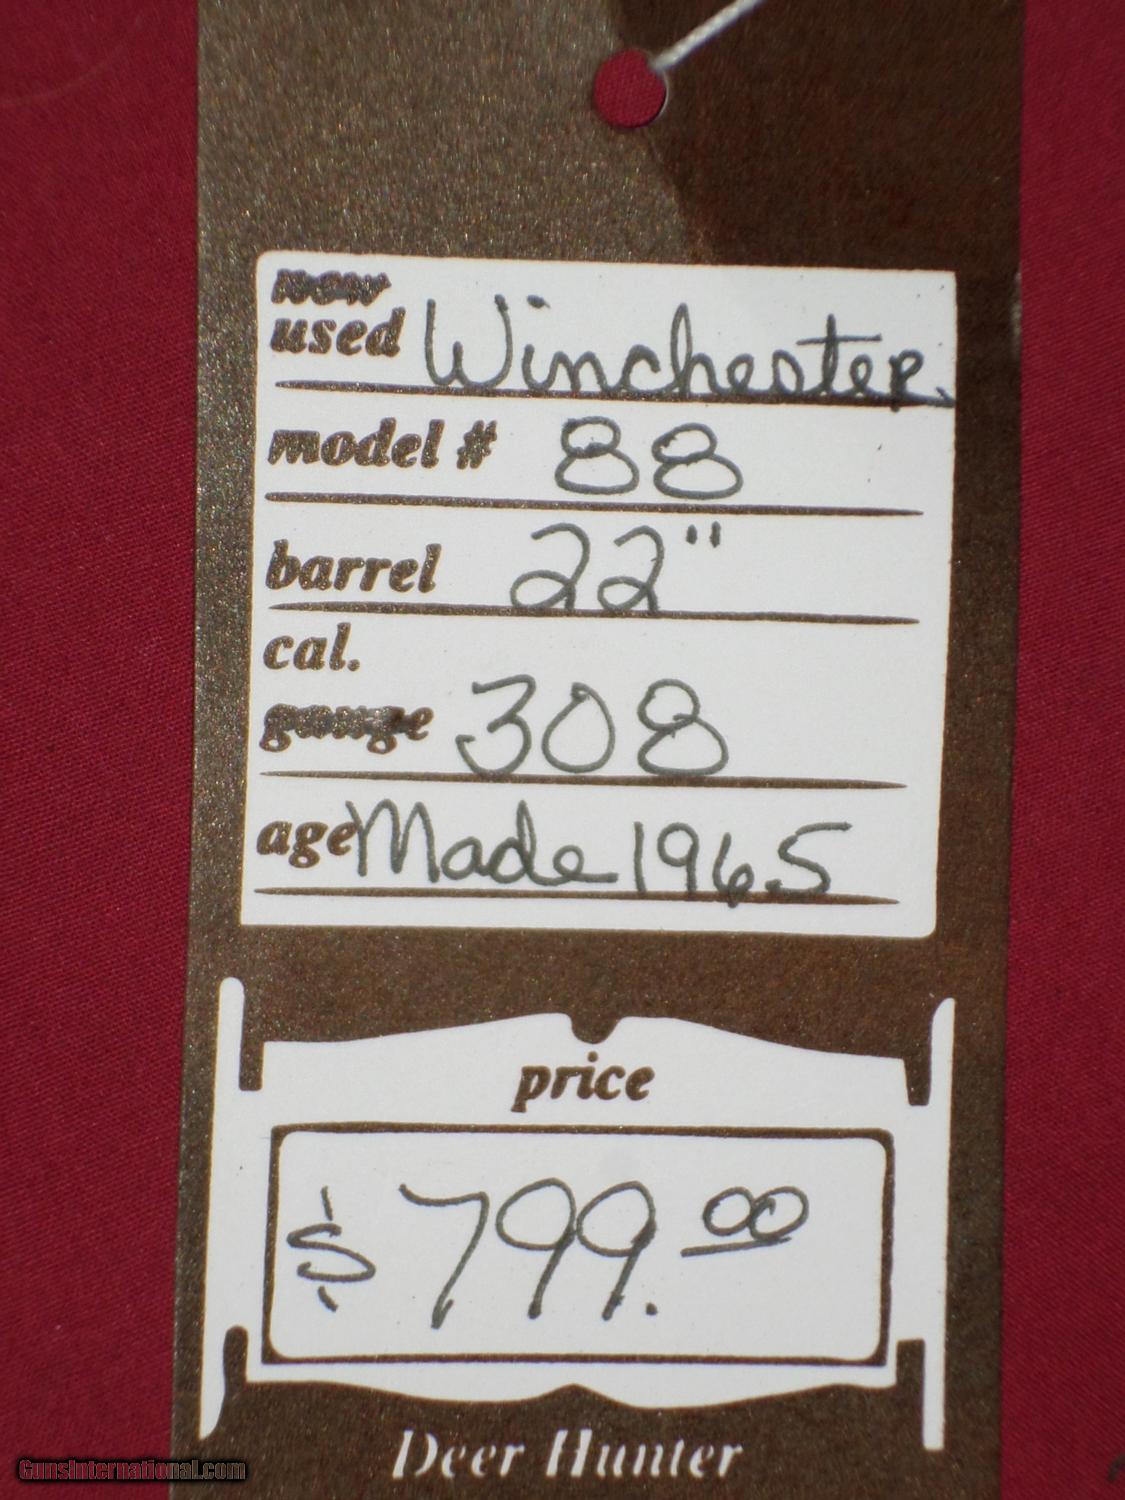 new
used Winchester.
model # 88
barrel 22"
cal.
gauge 308
age Made 1965
price
$ 799.00
Deer Hunter
GunsInternational.com